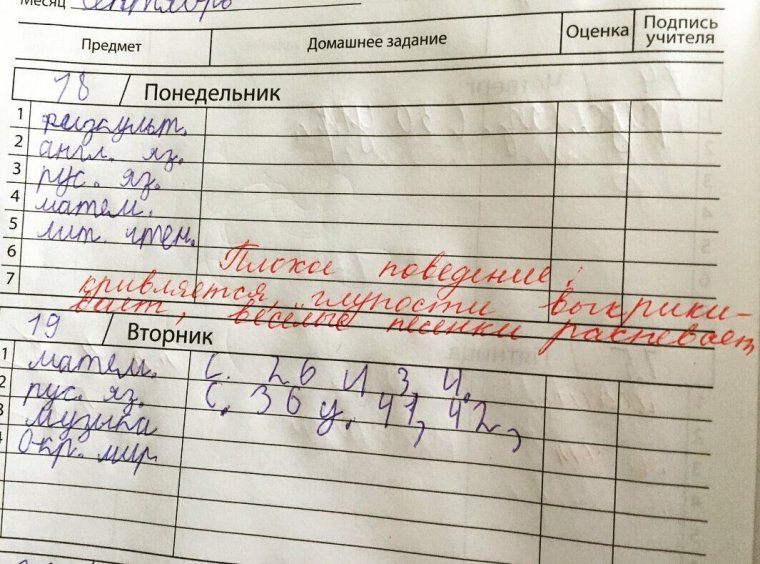 Месяц Сентябрь
Предмет Домашнее задание Оценка Подпись учителя
18 Понедельник
1 физкульт.
2 англ. яз.
3 рус. яз.
4 матем.
5 лит. чтен.
6 Плохое поведение:
7 кривляется, глупости выкрики-
вает, весёлые песенки распевает
19 Вторник
1 матем. С. 26 и 3, 4.
2 рус. яз. С. 36 у. 41, 42,
3 музыка
4 Окр. мир